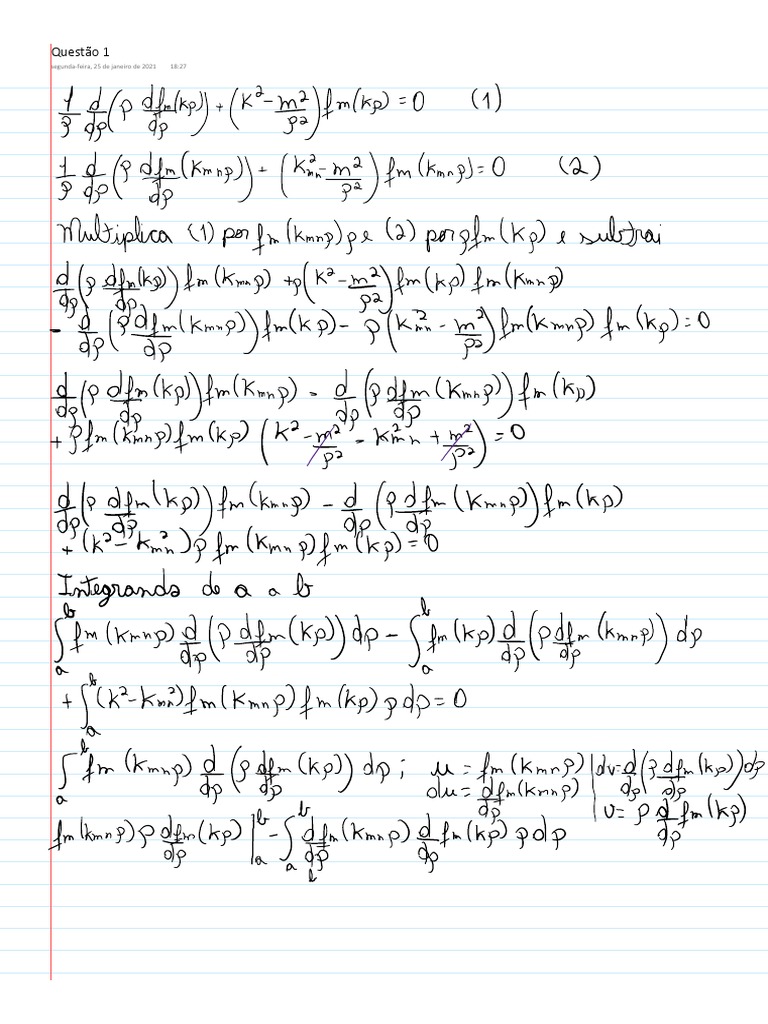 Questão 1
segunda-feira, 25 de janeiro de 2021 18:27
1/ρ d/dρ (ρ dfm(kρ)/dρ) + (k² - m²/ρ²) fm(kρ) = 0 (1)
1/ρ d/dρ (ρ dfm(kmnρ)/dρ) + (kmn² - m²/ρ²) fm(kmnρ) = 0 (2)
Multiplica (1) por fm(kmnρ)ρ e (2) por ρfm(kρ) e subtrai
d/dρ (ρ dfm(kρ)/dρ) fm(kmnρ) + ρ(k² - m²/ρ²) fm(kρ) fm(kmnρ)
- d/dρ (ρ dfm(kmnρ)/dρ) fm(kρ) - ρ (kmn² - m²/ρ²) fm(kmnρ) fm(kρ) = 0
d/dρ (ρ dfm(kρ)/dρ) fm(kmnρ) - d/dρ (ρ dfm(kmnρ)/dρ) fm(kρ)
+ ρfm(kmnρ)fm(kρ) (k² - m²/ρ² - kmn² + m²/ρ²) = 0
d/dρ (ρ dfm(kρ)/dρ) fm(kmnρ) - d/dρ (ρ dfm(kmnρ)/dρ) fm(kρ)
+ (k² - kmn²) ρ fm(kmnρ) fm(kρ) = 0
Integrando de a a b
∫ₐᵇ fm(kmnρ) d/dρ (ρ dfm(kρ)/dρ) dρ - ∫ₐᵇ fm(kρ) d/dρ (ρ dfm(kmnρ)/dρ) dρ
+ ∫ₐᵇ (k² - kmn²) fm(kmnρ) fm(kρ) ρ dρ = 0
∫ₐᵇ fm(kmnρ) d/dρ (ρ dfm(kρ)/dρ) dρ ; u = fm(kmnρ) | dv = d/dρ (ρ dfm(kρ)/dρ) dρ
du = dfm(kmnρ)/dρ | v = ρ d/dρ fm(kρ)
fm(kmnρ) ρ dfm(kρ)/dρ |ₐᵇ - ∫ₐᵇ dfm(kmnρ)/dρ d/dρ fm(kρ) ρ dρ
b